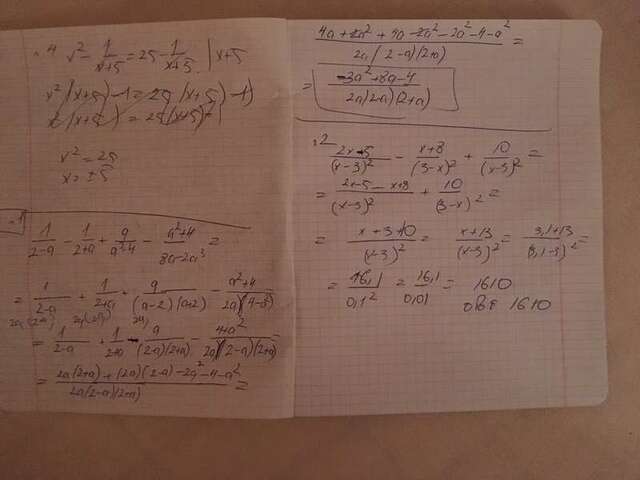 №4 x² - 1/(x+5) = 25 - 1/(x+5) | x+5
x² (x+5) - 1 = 25 (x+5) - 1)
x² (x+5) = 25 (x+5)
x² = 25
x = ±5
№1
1/(2-a) - 1/(2+a) + a/(a²-4) - (a²+4)/(8a-2a³) =
= 1/(2-a) + 1/(2+a) + a/((a-2)(a+2)) - (a²+4)/(2a(4-a²))
= 1/(2-a) + 1/(2+a) - a/((2-a)(2+a)) - (4+a²)/(2a(2-a)(2+a)) =
= (2a(2+a) + (2a)(2-a) - 2a² - 4 - a²)/(2a(2-a)(2+a)) =
(4a + 2a² + 4a - 2a² - 2a² - 4 - a²)/(2a(2-a)(2+a)) =
= (-3a² + 8a - 4)/(2a(2-a)(2+a))
№2
(2x-5)/(x-3)² - (x+8)/(3-x)² + 10/(x-3)² =
= (2x-5-x+8)/(x-3)² + 10/(3-x)² =
= (x+3+10)/(x-3)² = (x+13)/(x-3)² = (3,1+13)/(3,1-3)² =
= 16,1/0,1² = 16,1/0,01 = 1610
1610